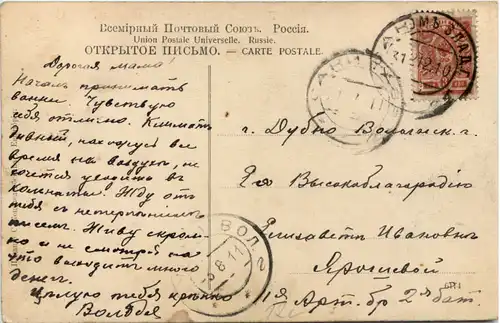 Всемірный Почтовый Союзъ. Россія.
Union Postale Universelle. Russie.
ОТКРЫТОЕ ПИСЬМО. — CARTE POSTALE.
Дорогая мама!
Началъ принимать
ванны. Чувствую
себя отлично. Климатъ
дивный, нахожусь все
время на воздухѣ, не
хочется уходить въ
комнаты. Жду отъ
тебя съ нетерпѣніемъ
писемъ. Живу скром-
но и не смотря на
это выходитъ много
денегъ.
Цѣлую тебя крѣпко
Володя
г. Дубно Волынск. г.
Ея Высокоблагородію
Елизаветѣ Ивановнѣ
Ярошевой
1я Арт. бр 2я бат.